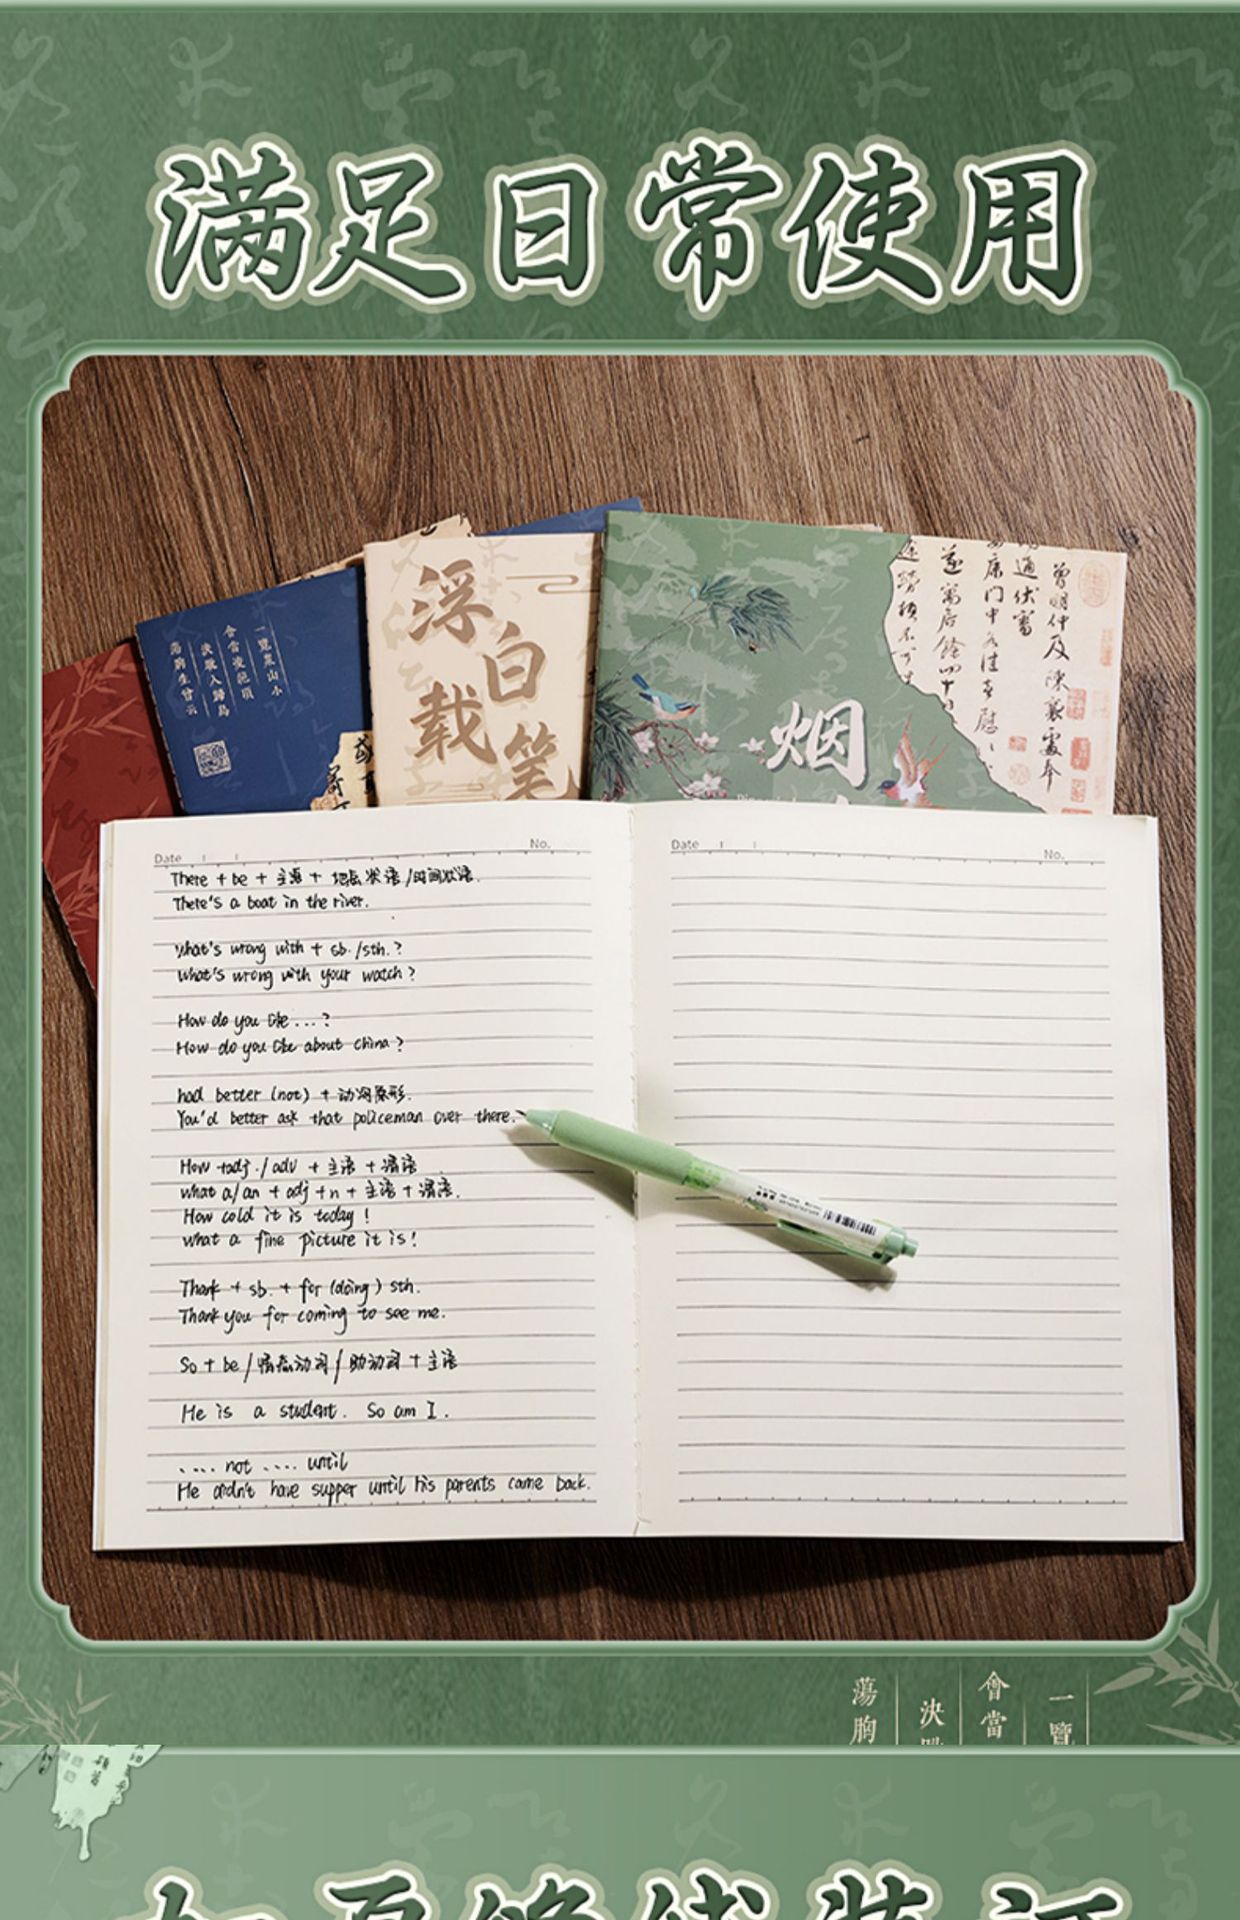 满足日常使用
一覽衆山小
會當凌絕頂
決眥入歸鳥
蕩胸生曾云
浮白载笔
烟
Date
No.
There + be + 主语 + 地点状语/时间状语.
There's a boat in the river.
What's wrong with + sb./sth.?
What's wrong with your watch?
How do you like ...?
How do you like about China?
had better (not) + 动词原形.
You'd better ask that policeman over there.
How +adj./adv + 主语 + 谓语
what a/an + adj + n + 主语 + 谓语.
How cold it is today!
what a fine picture it is!
Thank + sb. + for (doing) sth.
Thank you for coming to see me.
So + be/情态动词/助动词 + 主语
He is a student. So am I.
.... not .... until
He didn't have supper until his parents came back.
Date
No.
一覽
會當
決
蕩胸